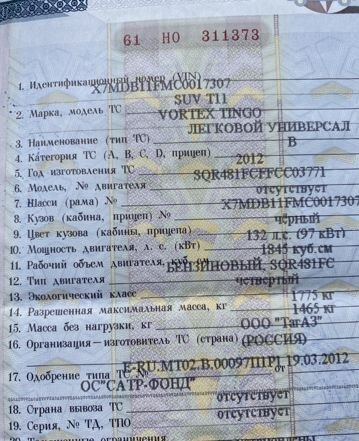 61 НО 311373
1. Идентификационный номер (VIN) X7MDB11FMC0017307
SUV T11
2. Марка, модель ТС VORTEX TINGO
ЛЕГКОВОЙ УНИВЕРСАЛ
3. Наименование (тип ТС)
4. Категория ТС (А, В, С, D, прицеп) B
5. Год изготовления ТС 2012
6. Модель, № двигателя SQR481FCFFCC03771
7. Шасси (рама) № отсутствует
8. Кузов (кабина, прицеп) № X7MDB11FMC0017307
9. Цвет кузова (кабины, прицепа) чёрный
10. Мощность двигателя, л. с. (кВт) 132 л.с. (97 кВт)
11. Рабочий объем двигателя, куб. см 1845 куб.см
12. Тип двигателя БЕНЗИНОВЫЙ, SQR481FC
13. Экологический класс четвертый
14. Разрешенная максимальная масса, кг 1775 кг
15. Масса без нагрузки, кг 1465 кг
16. Организация – изготовитель ТС (страна) ООО "ТагАЗ"
(РОССИЯ)
17. Одобрение типа ТС № E-RU.MT02.B.00097П1Р1 от 19.03.2012
ОС"САТР-ФОНД"
18. Страна вывоза ТС отсутствует
19. Серия, № ТД, ТПО отсутствует